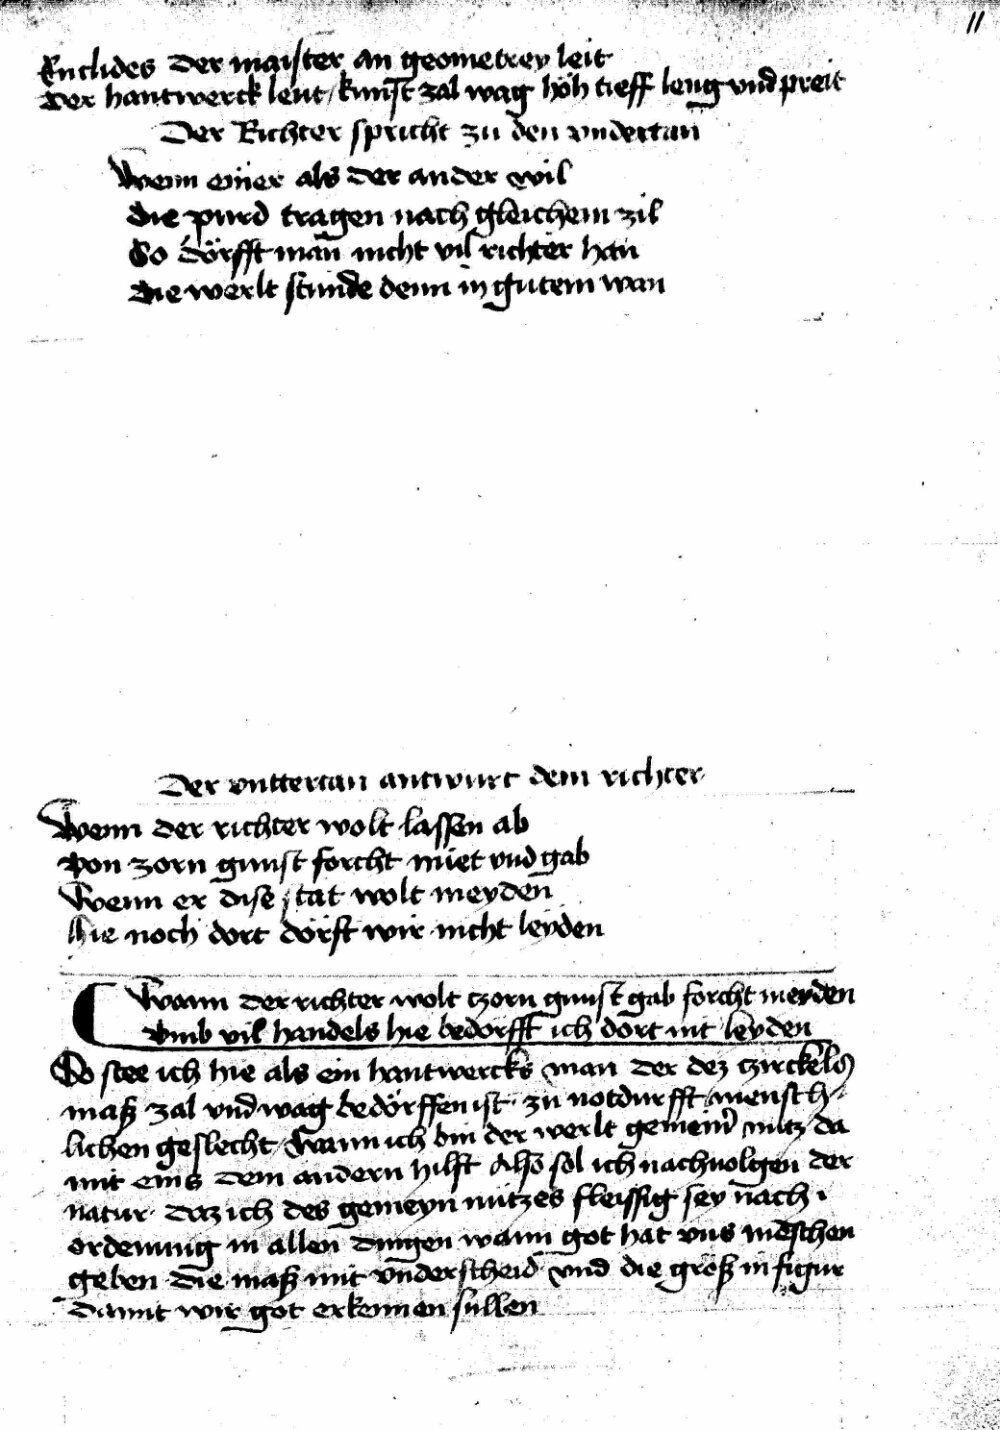 11
Euclides der maister an geometrey leit
Der hantwerck leut / kunst zal wag höh tieff leng vnd preit
Der Richter spricht zu den vndertan
Wenn einer als der ander wil
die purd tragen nach gleichem zil
So dörfft man nicht vil richter han
die werlt stunde denn in gutem wan
Der vnttertan antwurt dem richter
Wenn der richter wolt lassen ab
von zorn gunst forcht miet vnd gab
Wenn er dise tat wolt meyden
Hie noch dort dörft wir nicht leyden
Wann der richter wolt czorn gunst gab forcht meyden
vmb vil handels hie bedorfft ich dort nit leyden
Do stee ich hie als ein hantwercks man der dez czirckels
maß zal vnd wag bedörffen ist · zu notdurfft mensch-
lichen geslecht / wann ich bin der werlt gemein nutz da
mit eins dem andern hilft Also sol ich nachuolgen der
natur · daz ich des gemeyn nützes fleissig sey nach
ordenung in allen dingen wann got hat vns mēschen
geben die maß mit vnderscheid vnd die größ in figur
damit wir got erkennen süllen